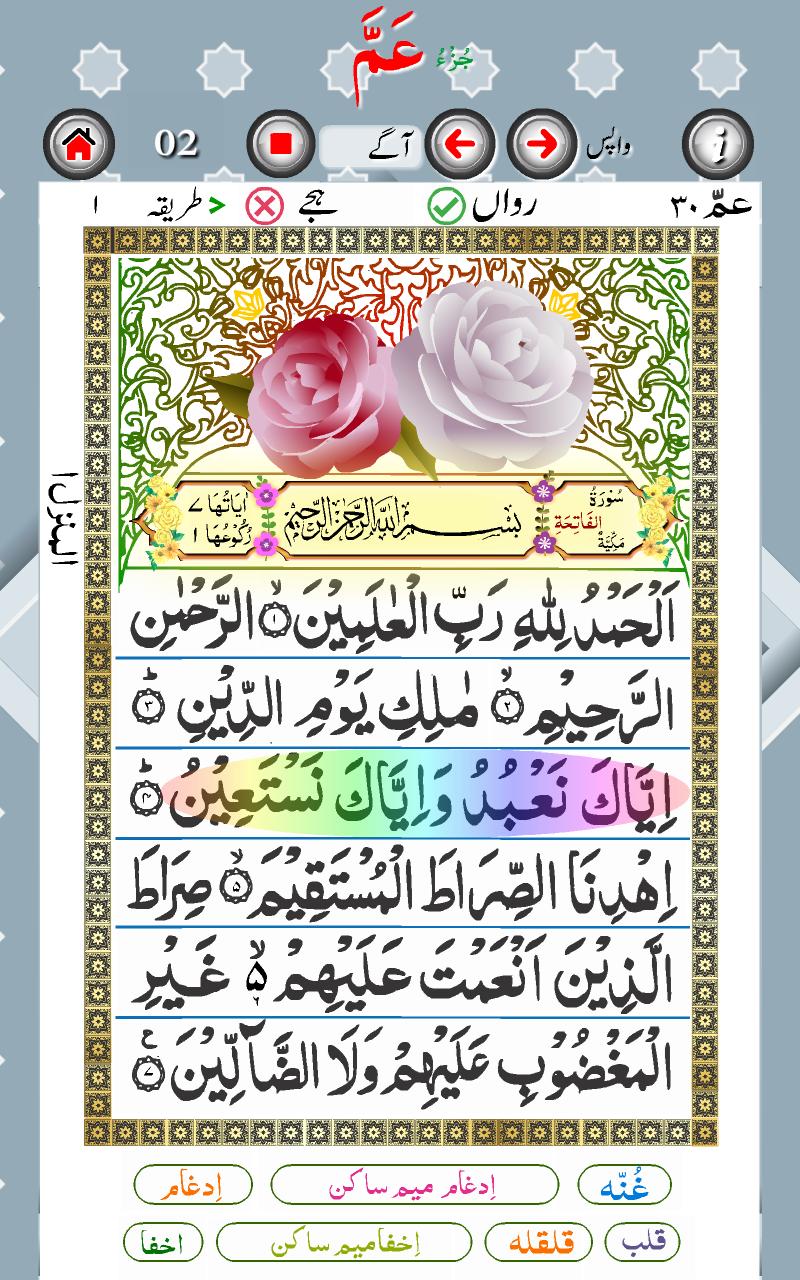 جُزْءُ عَمَّ
02 آگے واپس i
عمّ ۳۰ رواں ہجے طریقہ > ۱
المنزل ۱
سُوْرَةُ الفَاتِحَة مَكِيَّةٌ
بِسْمِ اللهِ الرَّحْمٰنِ الرَّحِيْمِ
اٰيَاتُهَا ۷ رُكُوْعُهَا ۱
اَلْحَمْدُ لِلّٰهِ رَبِّ الْعٰلَمِيْنَ ۙ﴿۱﴾ الرَّحْمٰنِ
الرَّحِيْمِ ۙ﴿۲﴾ مٰلِكِ يَوْمِ الدِّيْنِ ؕ﴿۳﴾
اِيَّاكَ نَعْبُدُ وَاِيَّاكَ نَسْتَعِيْنُ ؕ﴿۴﴾
اِهْدِنَا الصِّرَاطَ الْمُسْتَقِيْمَ ۙ﴿۵﴾ صِرَاطَ
الَّذِيْنَ اَنْعَمْتَ عَلَيْهِمْ ۙ۵ غَيْرِ
الْمَغْضُوْبِ عَلَيْهِمْ وَلَا الضَّآلِّيْنَ ع﴿۷﴾
غُنّه اِدغام میم ساکن اِدغام
قلب قلقله اِخفا میم ساکن اخفا